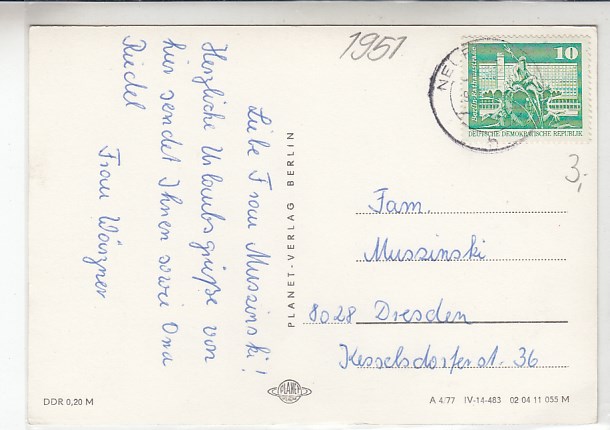 1951
Liebe Frau Muszinski!
Herzliche Urlaubsgrüße von
hier sendet Ihnen sowie Oma
Riedel
Frau Wünzner
PLANET-VERLAG BERLIN
10
Berlin, Rathausstraße
DEUTSCHE DEMOKRATISCHE REPUBLIK
3,-
Fam.
Muszinski
8028 Dresden
Kesselsdorferst. 36
DDR 0,20 M
PLANET
A 4/77 IV-14-483 02 04 11 055 M